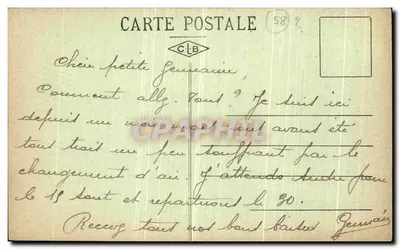 CARTE POSTALE
58
CLB
Chère petite Germaine,
Comment allez. Vous ? Je suis ici
depuis un mois nous avons été
tous trois un peu souffrant par le
changement d'air. J'attends André pour
le 15 août et repartirons le 30.
Recevez tous nos bons baisers Germain
CPARAMA.COM